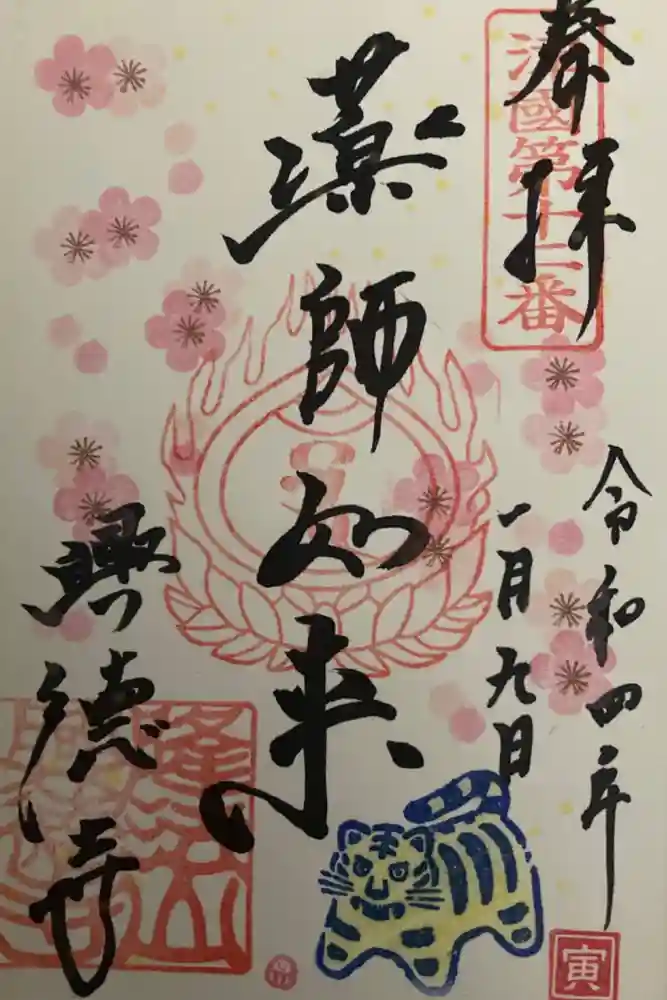 奉拝
國第十二番
令和四年
一月九日
薬師如来
興徳寺
寅